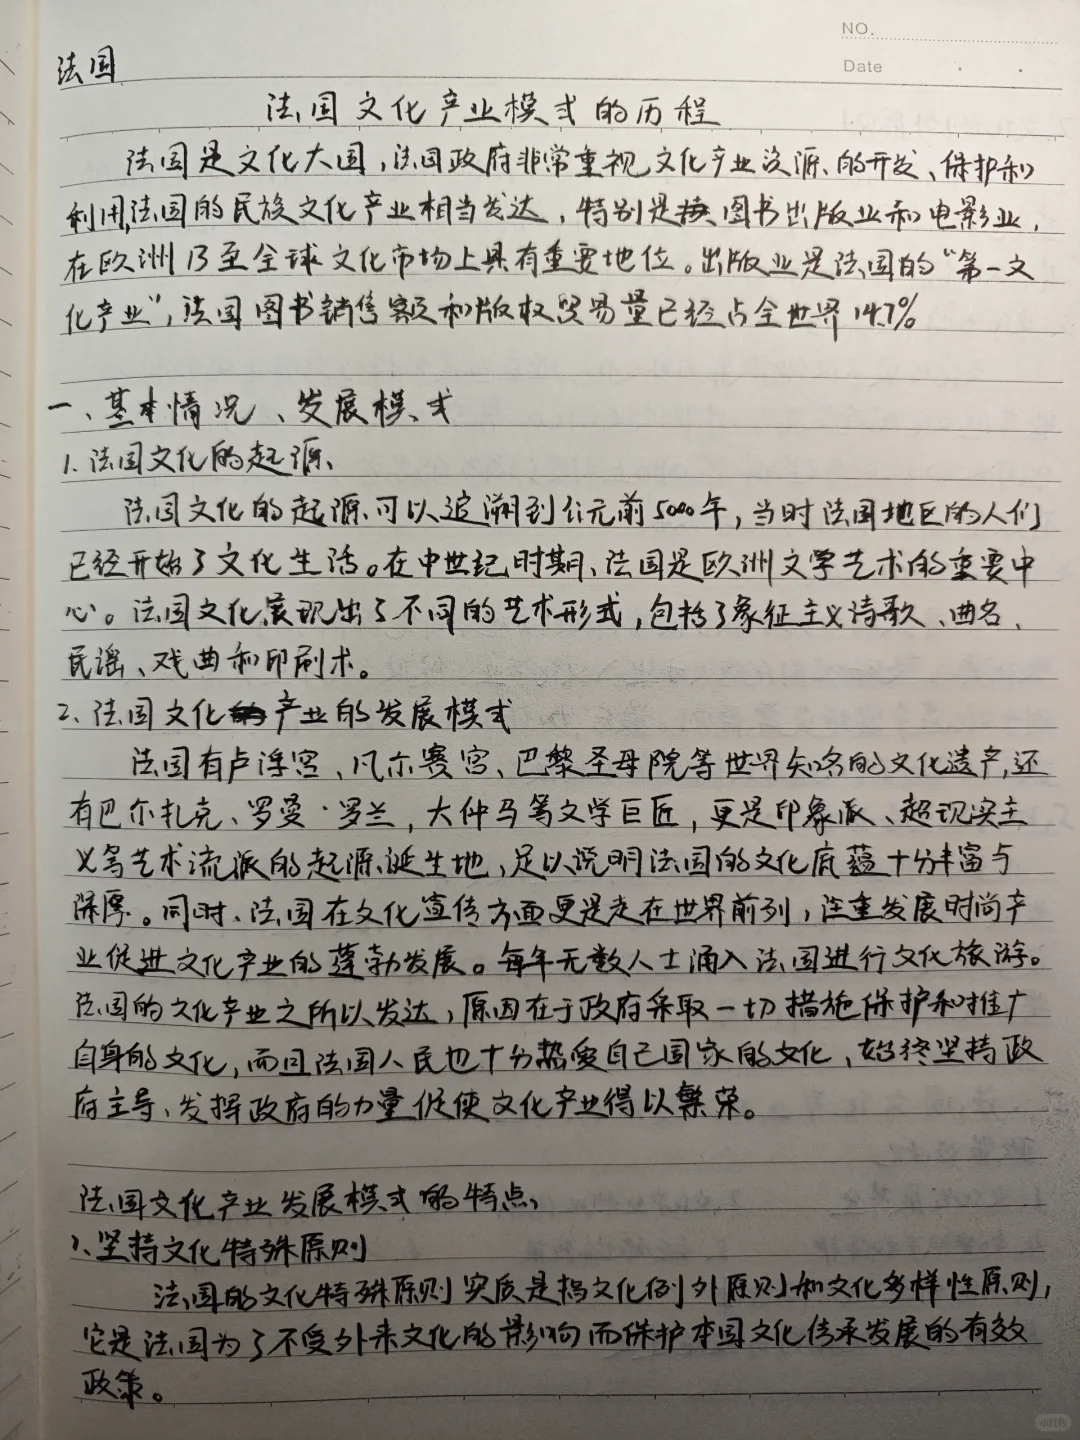 NO.
Date
法国
法国文化产业模式的历程
法国是文化大国,法国政府非常重视文化产业资源的开发、保护和
利用,法国的民族文化产业相当发达,特别是图书出版业和电影业,
在欧洲乃至全球文化市场上具有重要地位。出版业是法国的“第一文
化产业”,法国图书销售额和版权贸易量已经占全世界14.7%
一、基本情况、发展模式
1.法国文化的起源
法国文化的起源可以追溯到公元前5000年,当时法国地区的人们
已经开始了文化生活。在中世纪时期、法国是欧洲文学艺术的重要中
心。法国文化展现出了不同的艺术形式,包括了象征主义诗歌、曲名、
民谣、戏曲和印刷术。
2.法国文化产业的发展模式
法国有卢浮宫、凡尔赛宫、巴黎圣母院等世界知名的文化遗产,还
有巴尔扎克、罗曼·罗兰,大仲马等文学巨匠,更是印象派、超现实主
义等艺术流派的起源诞生地,足以说明法国的文化底蕴十分丰富与
深厚。同时、法国在文化宣传方面更是走在世界前列,注重发展时尚产
业促进文化产业的蓬勃发展。每年无数人士涌入法国进行文化旅游。
法国的文化产业之所以发达,原因在于政府采取一切措施保护和推广
自身的文化,而且法国人民也十分热爱自己国家的文化,始终坚持政
府主导、发挥政府的力量促使文化产业得以繁荣。
法国文化产业发展模式的特点:
1.坚持文化特殊原则
法国的文化特殊原则实质是指文化例外原则和文化多样性原则,
它是法国为了不受外来文化的影响而保护本国文化传承发展的有效
政策。
小红书